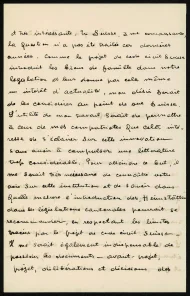 d'être intéressante, en Suisse à ma connaissance,
la question n'a pas été traitée ces dernières
années. Comme le projet de code civil Suisse
introduit les biens de famille dans notre
législation et leur donne par cela même
un intérêt d'actualité, mon désir serait
de les considérer au point de vue Suisse.
L'utilité de mon travail serait de permettre
à ceux de mes compatriotes que cela inté-
resse de s'éclairer sur cette innovation
sans avoir à compulser une littérature
trop considérable. Pour atteindre ce but, il
me serait très nécessaire de connaître votre
avis sur cette institution et de savoir dans
quelle mesure l'introduction des Heimstätten
dans les législations cantonales pourrait se
recommander, en respectant les limites
tracées par le projet de code civil Suisse.
Il me serait également indispensable de
posséder les documents: avant-projet,
projet, délibérations et décisions, des